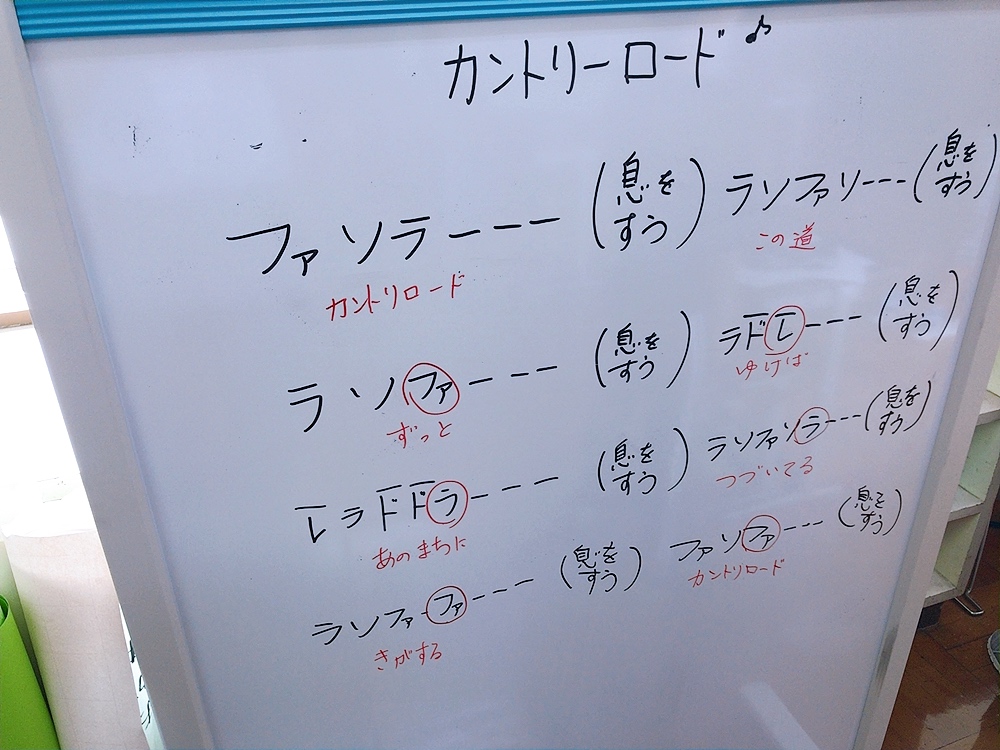 カントリーロード♪
ファソラーーー (息をすう) ラソファソーーー (息をすう)
カントリロード この道
ラソファーーー (息をすう) ラドレーーー (息をすう)
ずっと ゆけば
レラドドラーーー (息をすう) ラソファソラーーー (息をすう)
あのまちに つづいてる
ラソファファーーー (息をすう) ファソファーーー (息をすう)
きがする カントリロード